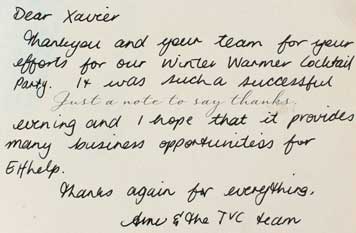 Dear Xavier
Thankyou and your team for your
efforts for our Winter Warmer Cocktail
Party. It was such a successful
Just a note to say thanks.
evening and I hope that it provides
many business opportunities for
EHhelp.
Thanks again for everything.
& the TVC team